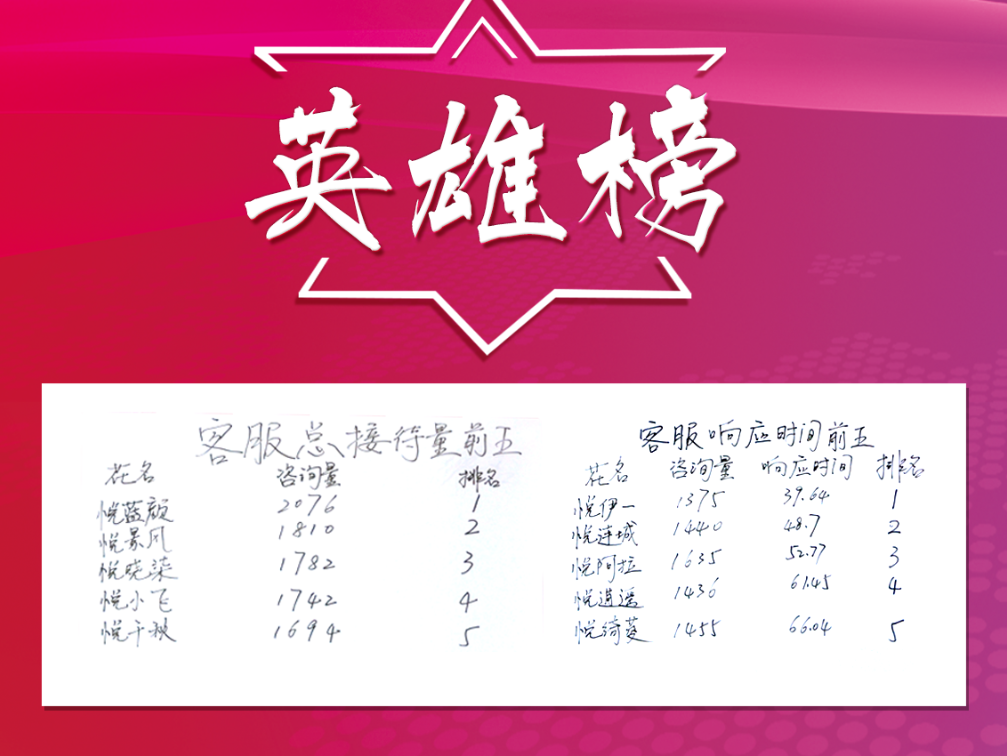 英雄榜
客服总接待量前五
花名 咨询量 排名
悦蓝颜 2076 1
悦暴风 1810 2
悦晓柒 1782 3
悦小飞 1742 4
悦千秋 1694 5
客服响应时间前五
花名 咨询量 响应时间 排名
悦伊一 1375 39.64 1
悦连城 1440 48.7 2
悦阿拉 1635 52.77 3
悦逍遥 1436 61.45 4
悦绮菱 1455 66.04 5